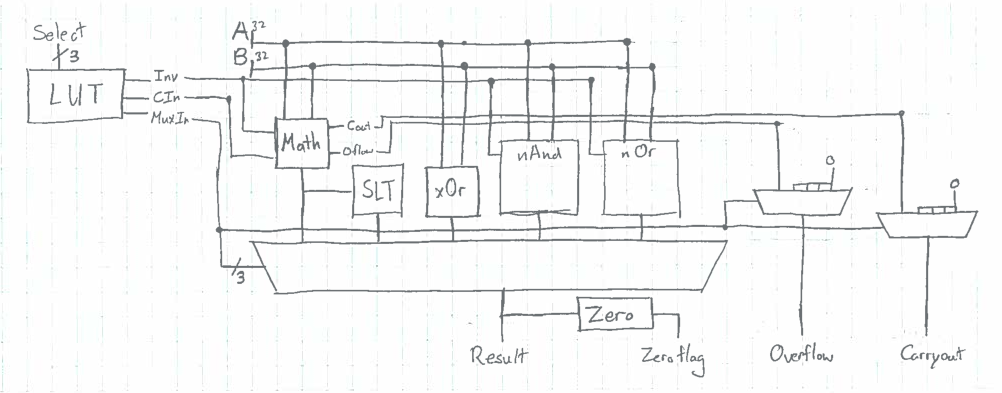 Select
3
LUT
Inv
CIn
MuxIn
A 32
B 32
Math
Cout
Oflow
SLT
xOr
nAnd
nOr
0
0
3
Zero
Result
Zeroflag
Overflow
Carryout